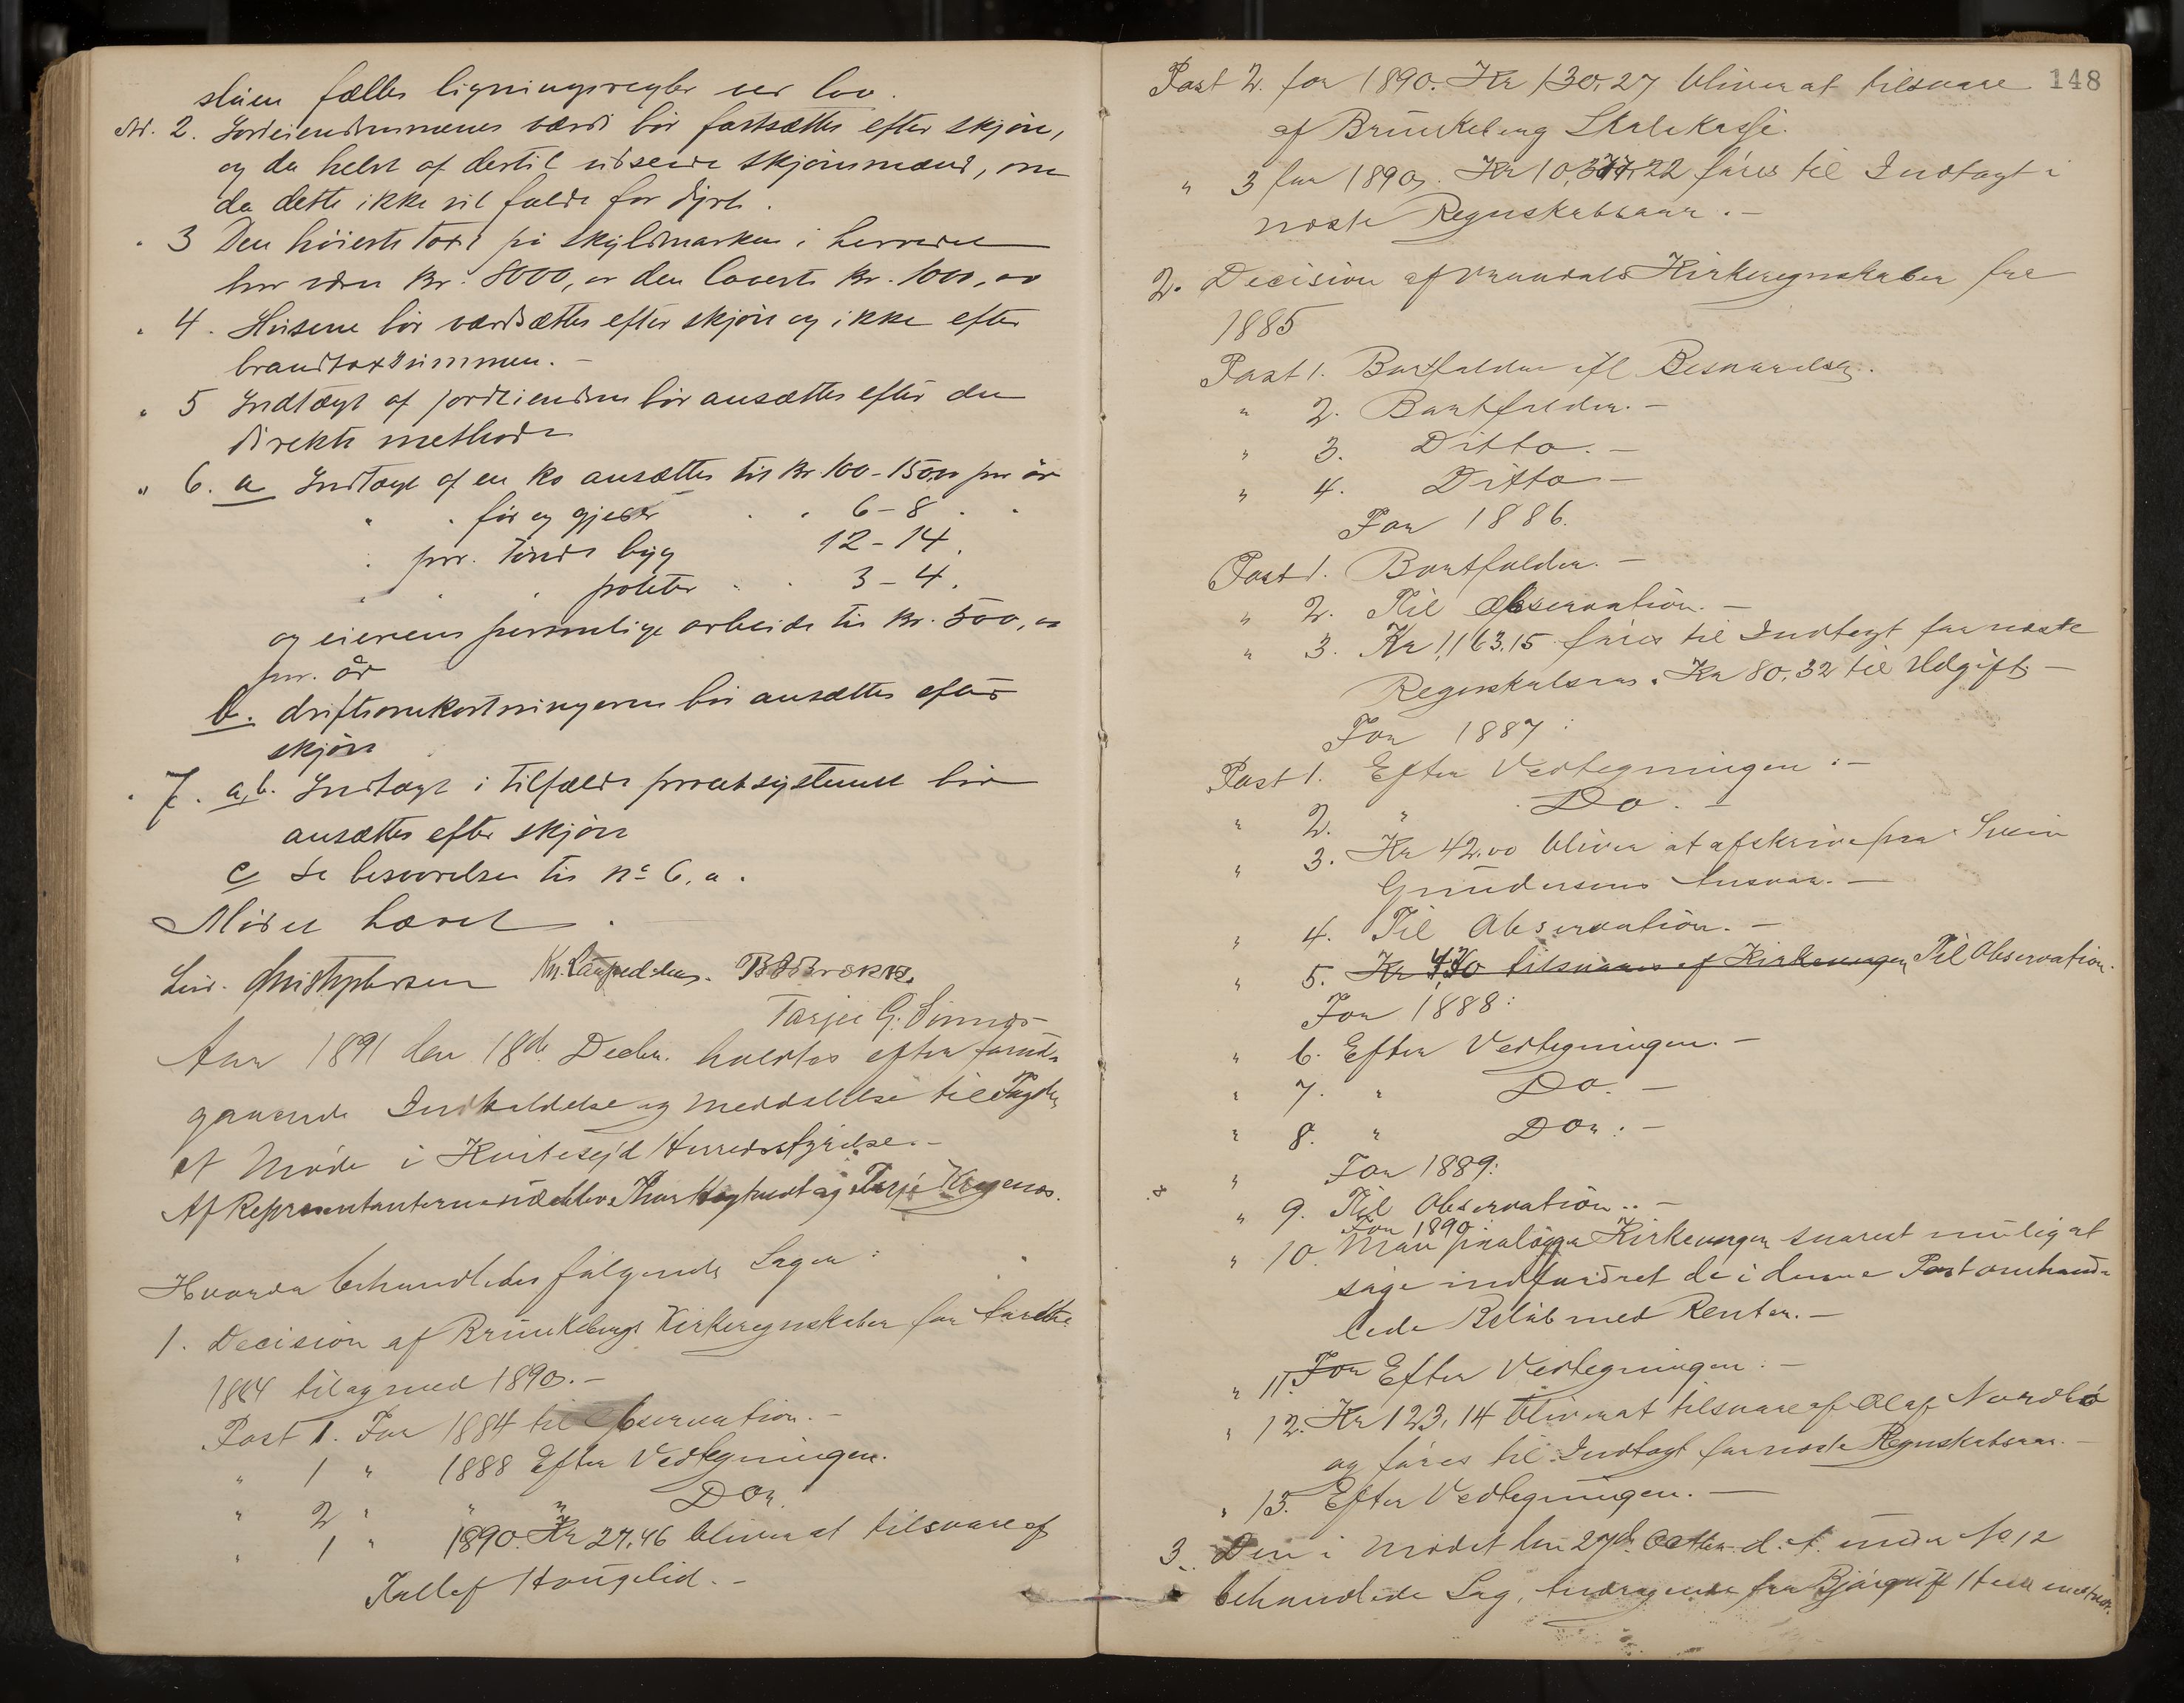 slåen fælles ligningsregler ved lov.
Ad. 2. Jordeiendommenes værdi bør fastsættes efter skjøn,
og da helst af dertil udseede skjønsmænd, om
da dette ikke vil falde for dyrt.
" 3 Den høieste taxt på skyldmarken i herredet
bør være kr. 8000, oo den laveste kr. 1000, oo
" 4. Husene bør værdsættes efter skjøn og ikke efter
brandtaxtsummen. –
" 5 Indtægt af jordeiendom bør ansættes efter den
direkte methode
" 6. a Indtægt af en ko ansættes til kr. 100 - 150,00 pr år
" " får og gjeder " " 6 – 8 " "
" pr. tønde byg 12 – 14 "
" " " poteter " " 3 – 4 "
og eierens personlige arbeide til kr. 500, oo
pr. år
b. driftsomkostningerne bør ansættes efter
skjøn
" 7. a,b. Indtægt i tilfælde procentsystemet bør
ansættes efter skjøn
c, se besvarelsen til no 6, a.
Mødet hævet.
Christophersen
Tarjei G.
Aar 1891 den 18de Decbr. holdtes efter forud-
gaaende Indkaldelse og Meddelelse til Fogden
et Møde i Kvitesejd Herredsstyrelse. –
Af Repræsentanterne udeblev og Tarje
Hvorda behandledes følgende Sager:
1. Decision af Brunkebergs Kirkeregnskaber for
1884 til og med 1890. –
Post 1. For 1884 til Observation. –
" 1 " 1888 Efter Vedtegningen.
" 2 " " " Do.
" 1 " 1890 Kr 27,46 bliver at tilsvare af
Kallef Haugelid. –
148
Post 2. for 1890. Kr 130,27 bliver at tilsvare
af Brunkeberg Skolekasse.
" 3 for 1890. Kr føres til Indtægt i
næste Regnskabsaar. –
2. Decision af Vraadals Kirkeregnskaber for
1885
Post 1. Bortfalder ifl Besvarelsen.
" 2. Bortfalder. –
" 3. Ditto. –
" 4. Ditto –
For 1886.
Post 1. Bortfalder. –
" 2. Til Observation. –
" 3. Kr 1,163.15 føres til Indtægt for næste
Regnskabsaar. Kr 80,32 til Udgift –
For 1887:
Post 1. Efter Vedtegningen. –
" 2. " Do. –
" 3. Kr 42.00 bliver at afskrive fra Svein
Gundersens Ansvar. –
" 4. Til Observation. –
" 5. Kr tilsvares af Kirkeværgen Til Observation.
For 1888:
" 6. Efter Vedtegningen. –
" 7. " Do. –
" 8. " Do. –
" For 1889:
" 9. Til Observation. –
For 1890
" 10. Man paalægger Kirkeværgen snarest mulig at
søge indfordret de i denne Post omhand-
lede Beløb med Renter. –
" 11. For Efter Vedtegningen. –
" 12. Kr 123,14 bliver at tilsvare af Olaf Nordbø
og føres til Indtægt for næste Regnskabsaar. –
" 13. Efter Vedtegningen. –
3. Den i Mødet den 27de Octbr d. A. under No 12
behandlede Sag, Andragende fra Bjørgulf